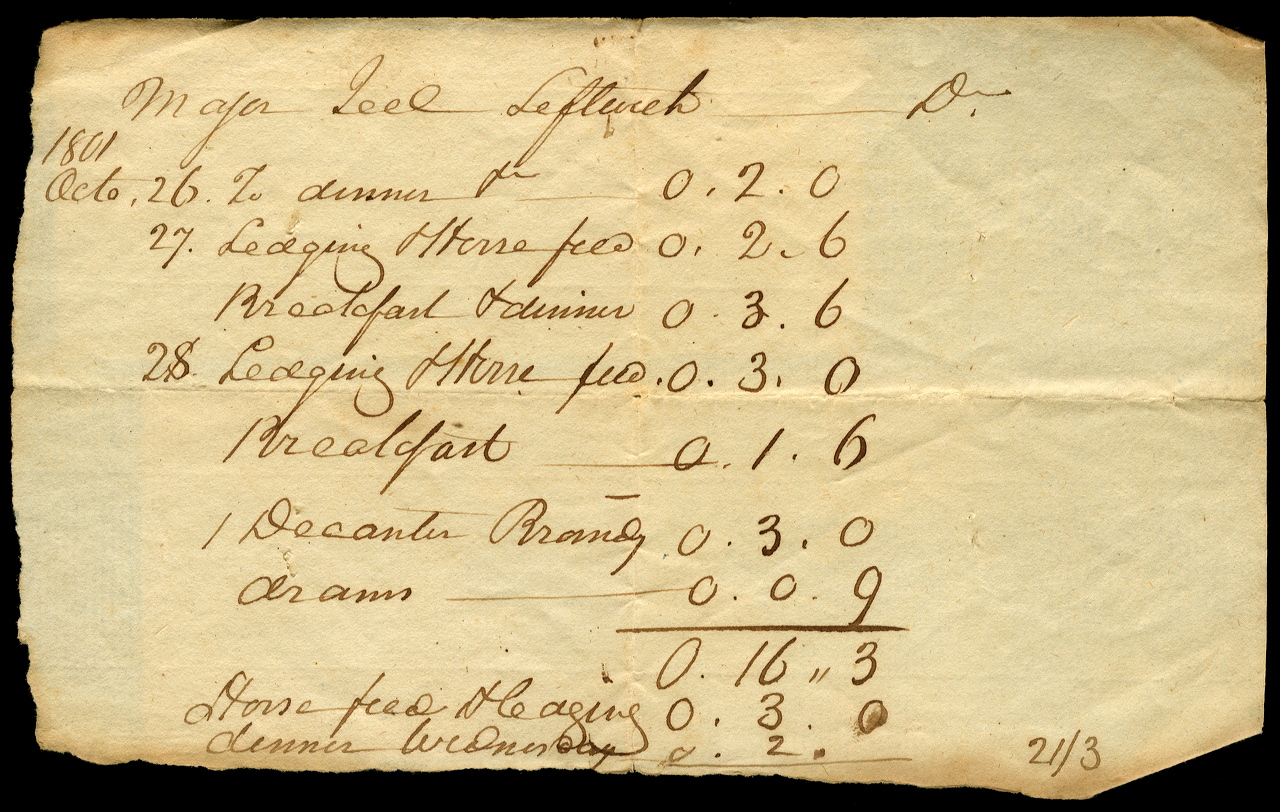 Major Joel Leftwich Dr.
1801
Octo. 26. To dinner 0.2.0
27. Lodging & Horse feed 0.2.6
Breakfast & dinner 0.3.6
28. Lodging & Horse feed. 0.3.0
Breakfast 0.1.6
1 Decanter Brandy 0.3.0
drams 0.0.9
0.16,,3
Horse feed & lodging 0.3.0
dinner Wednesday 0.2.
21/3